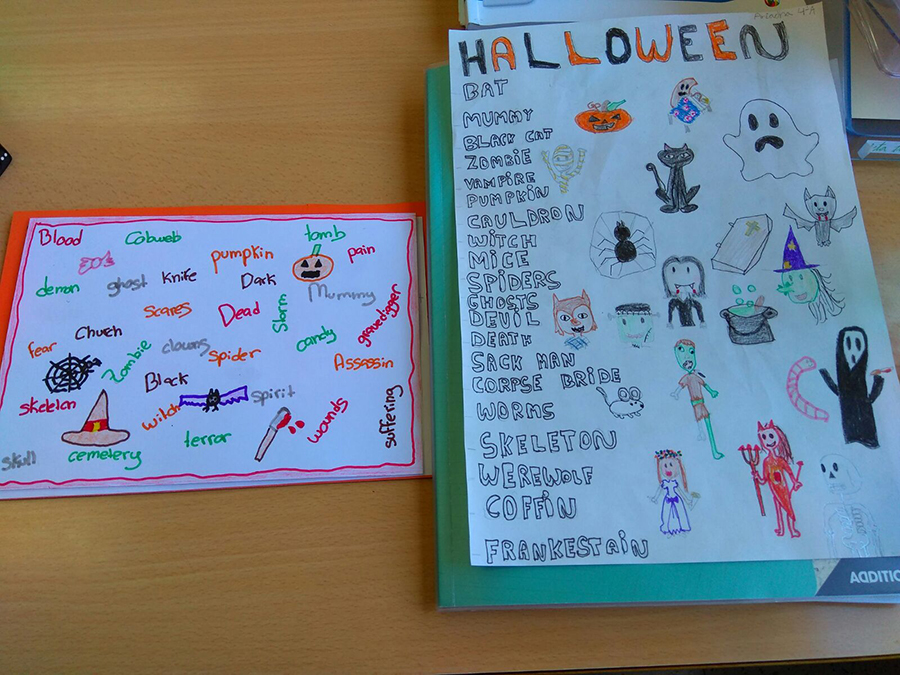 Blood Cobweb tomb
pumpkin pain
demon ghost Knife Dark Mummy
scares Dead Storm gravedigger
Church
fear Zombie clowns spider candy Assassin
Black
skeleton witch spirit wounds suffering
terror
skull cemetery
HALLOWEEN
BAT
MUMMY
BLACK CAT
ZOMBIE
VAMPIRE
PUMPKIN
CAULDRON
WITCH
MICE
SPIDERS
GHOSTS
DEVIL
DEATH
SACK MAN
CORPSE BRIDE
WORMS
SKELETON
WEREWOLF
COFFIN
FRANKESTAIN
ADDITIO